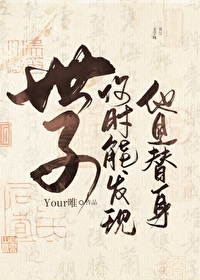 世子
何时能发现
他是替身
Your唯 作品